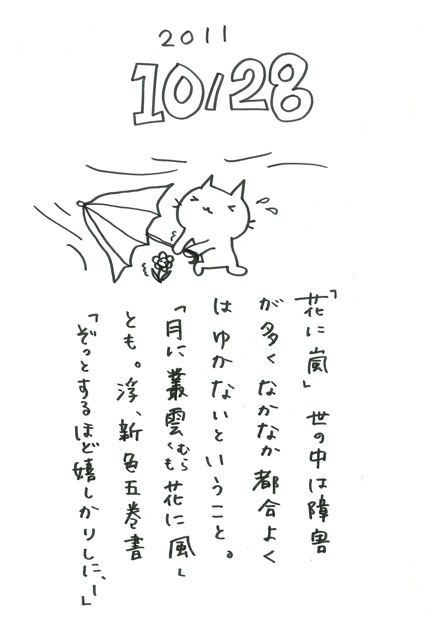 2011
10/28
「花に嵐」 世の中は障害
が多くなかなか都合よく
はゆかないということ。
「月に叢雲むらくも花に風」
とも。浮、新色五巻書
「ぞっとするほど嬉しかりしに、―」